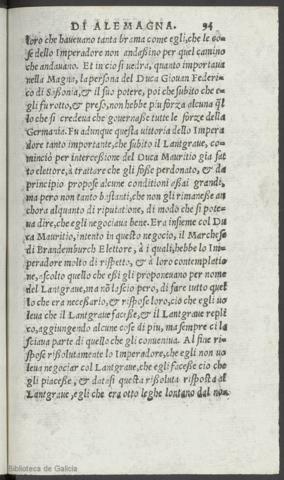 DI ALEMAGNA. 94
loro che haueuano tanta brama come egli, che le co-
se dello Imperadore non andaßino per quel camino
che andauano. Et in ciò si uedra, quanto importaua
nella Magna, la persona del Duca Giouan Federi-
co di Saßonia, & il suo potere, poi che subito che e-
gli fu rotto, & preso, non hebbe piu forza alcuna q̃l
lo che si credeua che gouernaße tutte le forze della
Germania. Fu adunque questa uittoria dello Impera
dore tanto importante, che subito il Lantgraue, co-
minciò per interceßione del Duca Mauritio gia fat
to elettore, à trattare che gli foße perdonato, & da
principio propose alcune conditioni aßai grandi,
ma pero non tanto bastanti, che non gli rimaneße an
chora alquanto di riputatione, di modo che si pote-
ua dire, che egli negociaua bene. Era insieme col Du
ca Mauritio, intento in questo negocio, il Marchese
di Brandemburch Elettore, à i quali, hebbe lo Im-
peradore molto di rispetto, & à loro contemplatio
ne, ascolto quello che eßi gli proponeuano per nome
del Lantgraue, ma nõ lascio pero, di fare tutto quel
lo che era neceßario, & rispose loro, ciò che egli uo
leua che il Lantgraue faceße, & il Lantgraue repli
cò, aggiungendo alcune cose di piu, ma sempre ci la
sciaua parte di quello che gli conueniua. Al fine ri-
spose rißolutamente lo Imperadore, che egli non uo
leua negociar col Lantgraue, che egli faceße cio che
gli piaceße, & datasi questa rißoluta risposta al
Lantgraue, egli che era otto leghe lontano dal no-
Biblioteca de Galicia